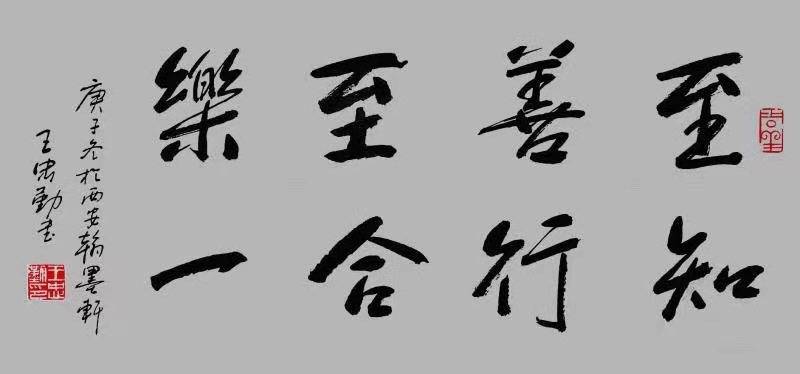 至善至樂
知行合一
庚子冬於西安翰墨軒
王忠勤书
王忠勤印